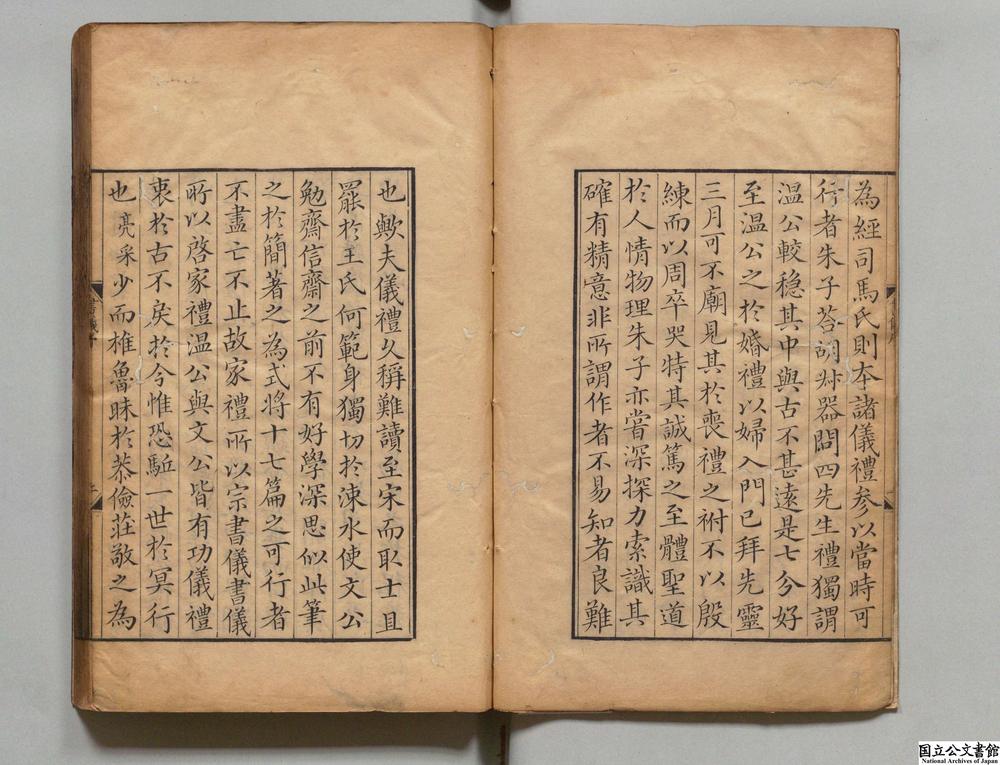 為經司馬氏則本諸儀禮参以當時可
行者朱子荅胡叔器問四先生禮獨謂
溫公較穏其中與古不甚遠是七分好
至溫公之於婚禮以婦入門已拜先靈
三月可不廟見其於喪禮之祔不以殷
練而以周卒哭特其誠篤之至體聖道
於人情物理朱子亦嘗深探力索識其
確有精意非所謂作者不易知者良難
也歟夫儀禮久稱難讀至宋而取士且
罷於王氏何範身獨切於涑水使文公
勉齋信齋之前不有好學深思似此筆
之於簡著之為式將十七篇之可行者
不盡亡不止故家禮所以宗書儀書儀
所以啓家禮溫公與文公皆有功儀禮
衷於古不戾於今惟恐駈一世於冥行
也亮采少而椎魯昧於恭儉莊敬之為
国立公文書館
National Archives of Japan